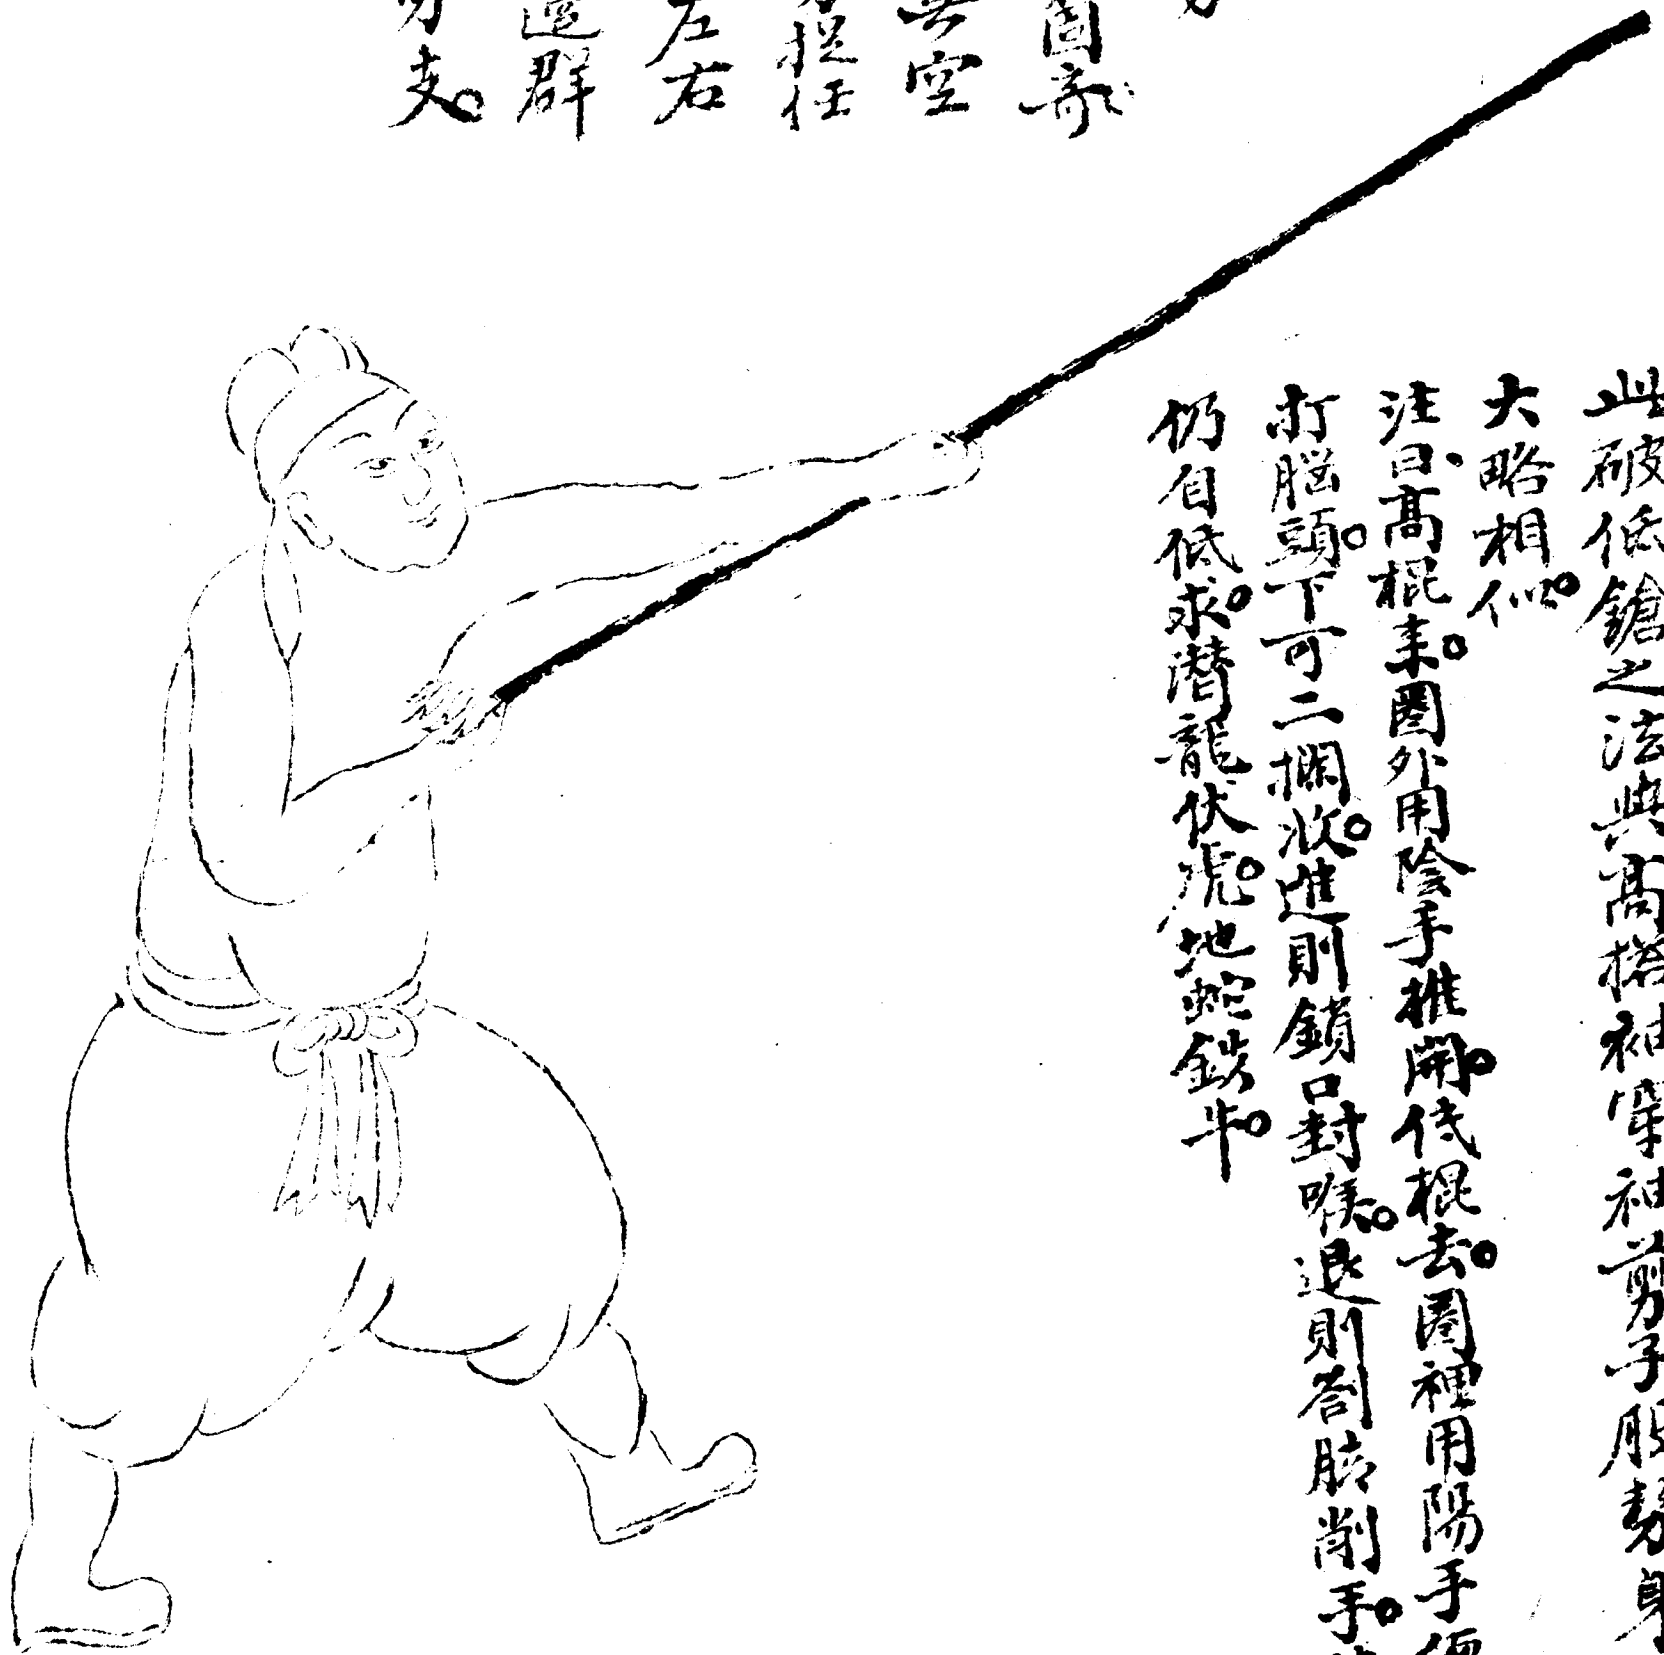 國家
無空
捉任
左右
還群
支。
此破低鎗之法與高搭袖穿袖剪子股勢身
大略相似。
注曰、高棍来。圈外用陰手推開。低棍去。圈裡用陽手
打腦頭。下可二攔收。進則鎖口封喉。退則劄膝削手。
仍自低求。潜龍伏虎。地蛇鉄牛。